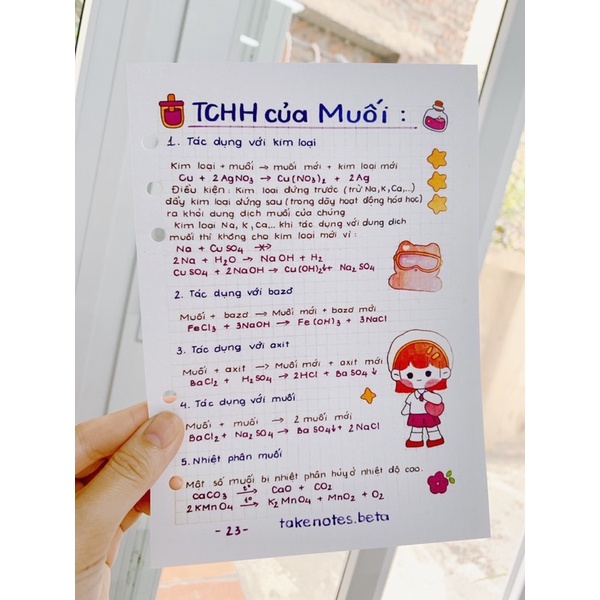 TCHH của Muối :
1. Tác dụng với kim loại
Kim loại + muối → muối mới + kim loại mới
Cu + 2AgNO₃ → Cu(NO₃)₂ + 2Ag
Điều kiện: Kim loại đứng trước (trừ Na,K,Ca,...)
đẩy kim loại đứng sau (trong dãy hoạt động hóa học)
ra khỏi dung dịch muối của chúng
Kim loại Na, K, Ca,... khi tác dụng với dung dịch
muối thì không cho kim loại mới vì :
Na + CuSO₄ -×->
2Na + H₂O → NaOH + H₂
CuSO₄ + 2NaOH → Cu(OH)₂↓ + Na₂SO₄
2. Tác dụng với bazơ
Muối + bazơ → Muối mới + bazơ mới
FeCl₃ + 3NaOH → Fe(OH)₃ + 3NaCl
3. Tác dụng với axit
Muối + axit → Muối mới + axit mới
BaCl₂ + H₂SO₄ → 2HCl + BaSO₄ ↓
4. Tác dụng với muối
Muối + muối → 2 muối mới
BaCl₂ + Na₂SO₄ → BaSO₄↓ + 2NaCl
5. Nhiệt phân muối
Một số muối bị nhiệt phân hủy ở nhiệt độ cao.
CaCO₃ –t°→ CaO + CO₂
2KMnO₄ –t°→ K₂MnO₄ + MnO₂ + O₂
- 23 -
takenotes.beta